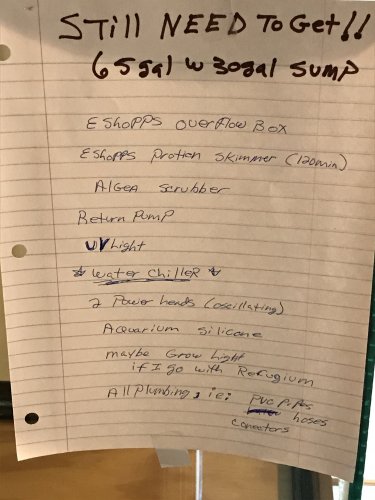 STill NEED To Get!!
65gal w 30gal SUMP
EShopps overflow Box
EShopps Protien Skimmer (120min)
Algea Scrubber
Return Pump
UV Light
Water Chiller
2 Power heads (oscillating)
Aquarium Silicone
maybe Grow Light
if I go with Refugium
All Plumbing, ie: PVC Pipes
hoses
conectors